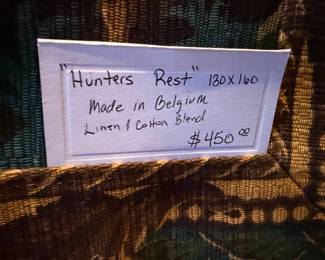 "Hunters Rest" 130x160
Made in Belgium
Linen & Cotton Blend
$450.00